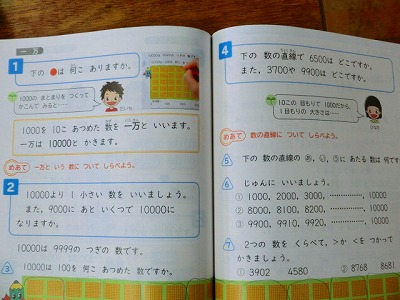 一 万
1
下の ●は 何こ ありますか。
1000の まとまりを つくって
かこんで みると……
だいち
1000を 10こ あつめた 数を 一万と いいます。
一万は 10000と かきます。
めあて 一万と いう 数に ついて しらべよう。
2
10000より 1 小さい 数を いいましょう。
また、9000に あと いくつで 10000に
なりますか。
10000は 9999の つぎの 数です。
3 10000は 100を 何こ あつめた 数ですか。
4
下の 数の直線で 6500は どこですか。
また、3700や 9900は どこですか。
10この 目もりで 1000だから、
1目もりの 大きさは……
めあて 数の直線に ついて しらべよう。
5 下の 数の直線の あ、い、うに あたる 数は 何です
6 じゅんに いいましょう。
① 1000、2000、3000、…………、10000
② 8000、8100、8200、…………、10000
③ 9900、9910、9920、…………、10000
7 2つの 数を くらべて、>か <を つかって
かきましょう。
① 3902 4580 ② 8768 8681